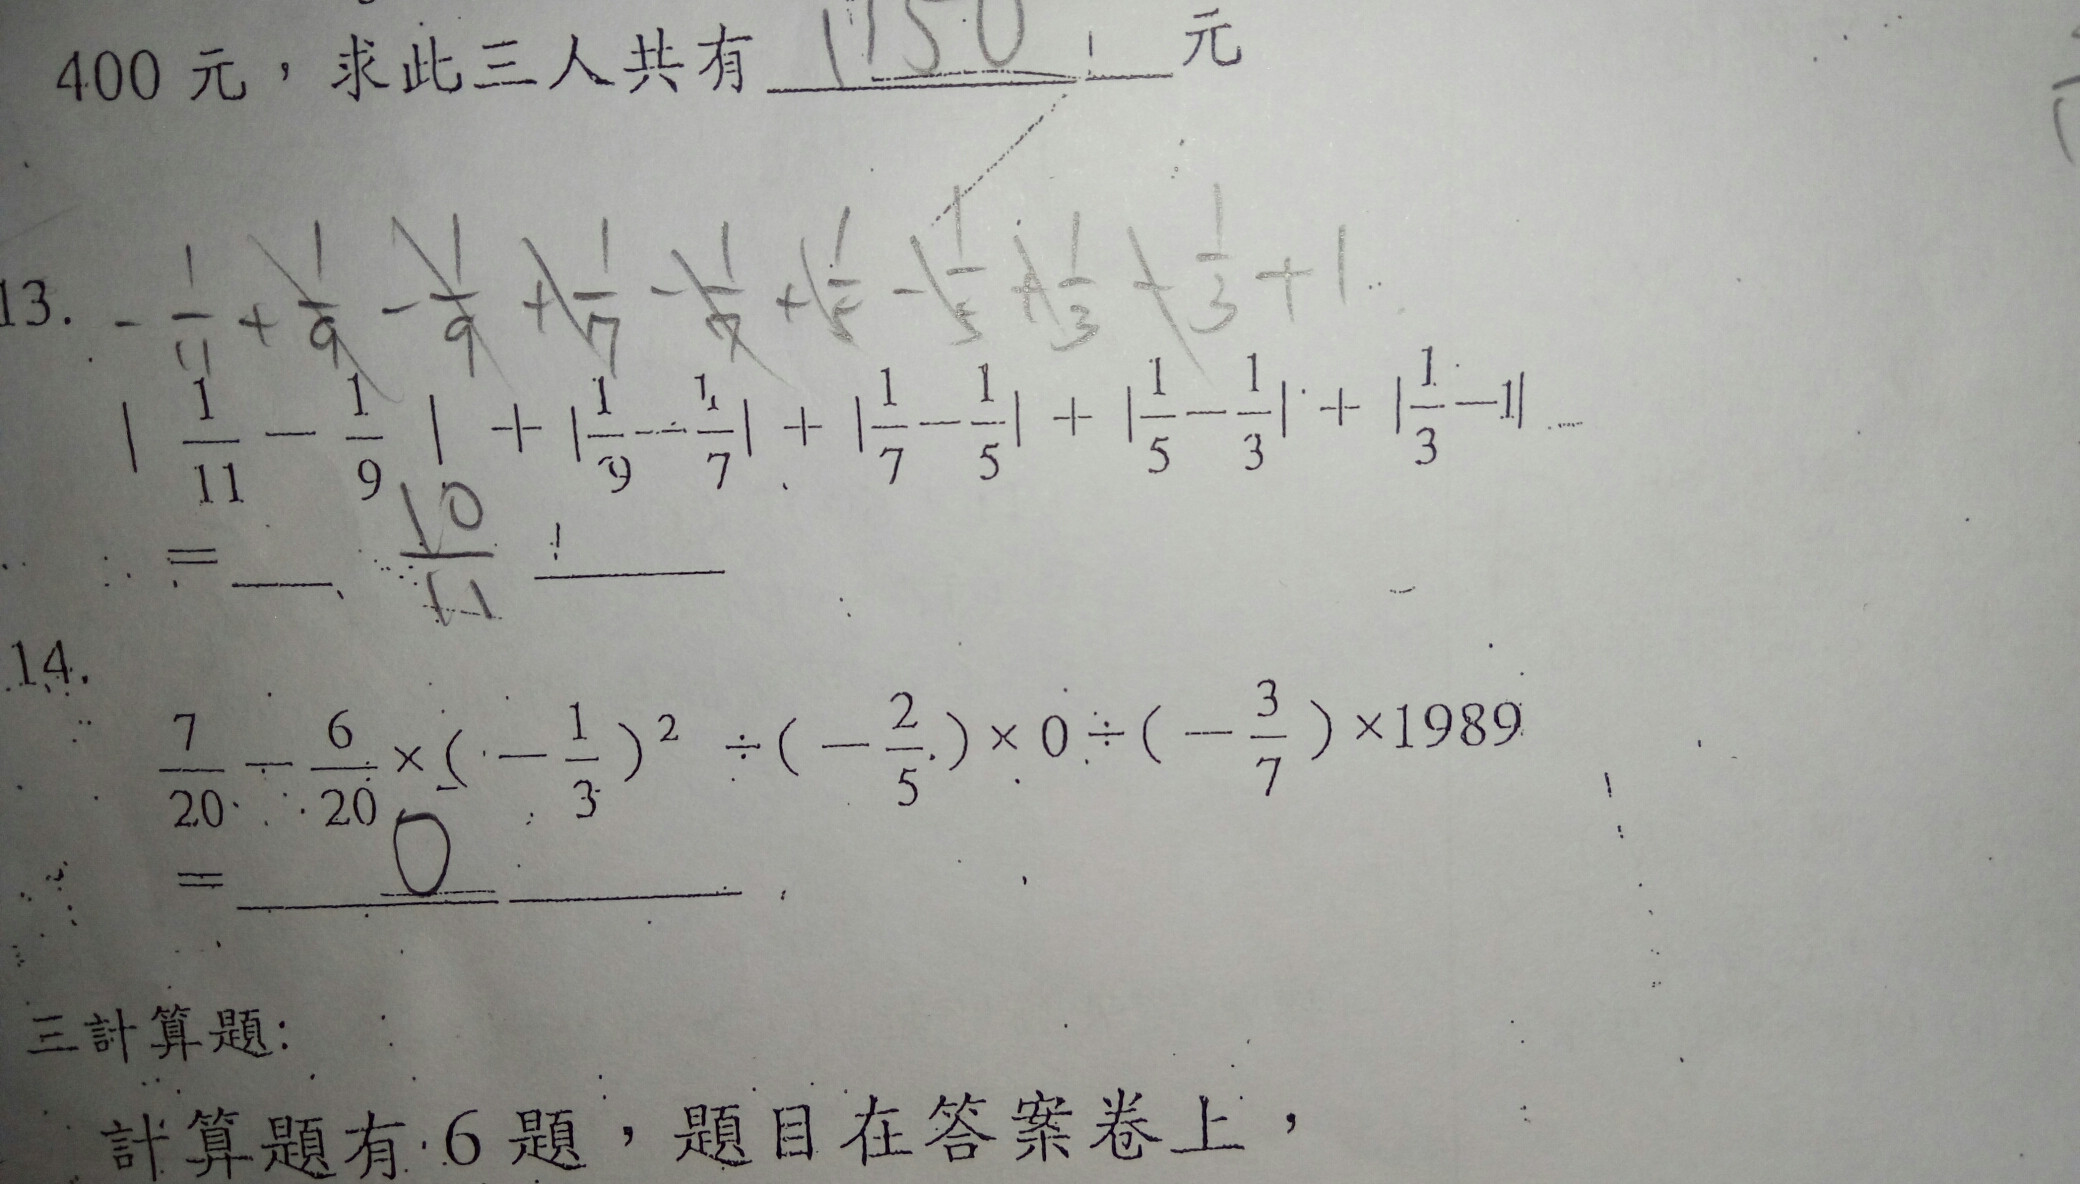 400 元，求此三人共有 1150 元
13. -1/11 + 1/9 - 1/9 + 1/7 - 1/7 + 1/5 - 1/5 + 1/3 - 1/3 + 1
| 1/11 - 1/9 | + | 1/9 - 1/7 | + | 1/7 - 1/5 | + | 1/5 - 1/3 | + | 1/3 - 1 |
= 10/11
14.
7/20 - 6/20 × ( - 1/3 )² ÷ ( - 2/5 ) × 0 ÷ ( - 3/7 ) × 1989
= 0
三計算題:
計算題有 6 題，題目在答案卷上，